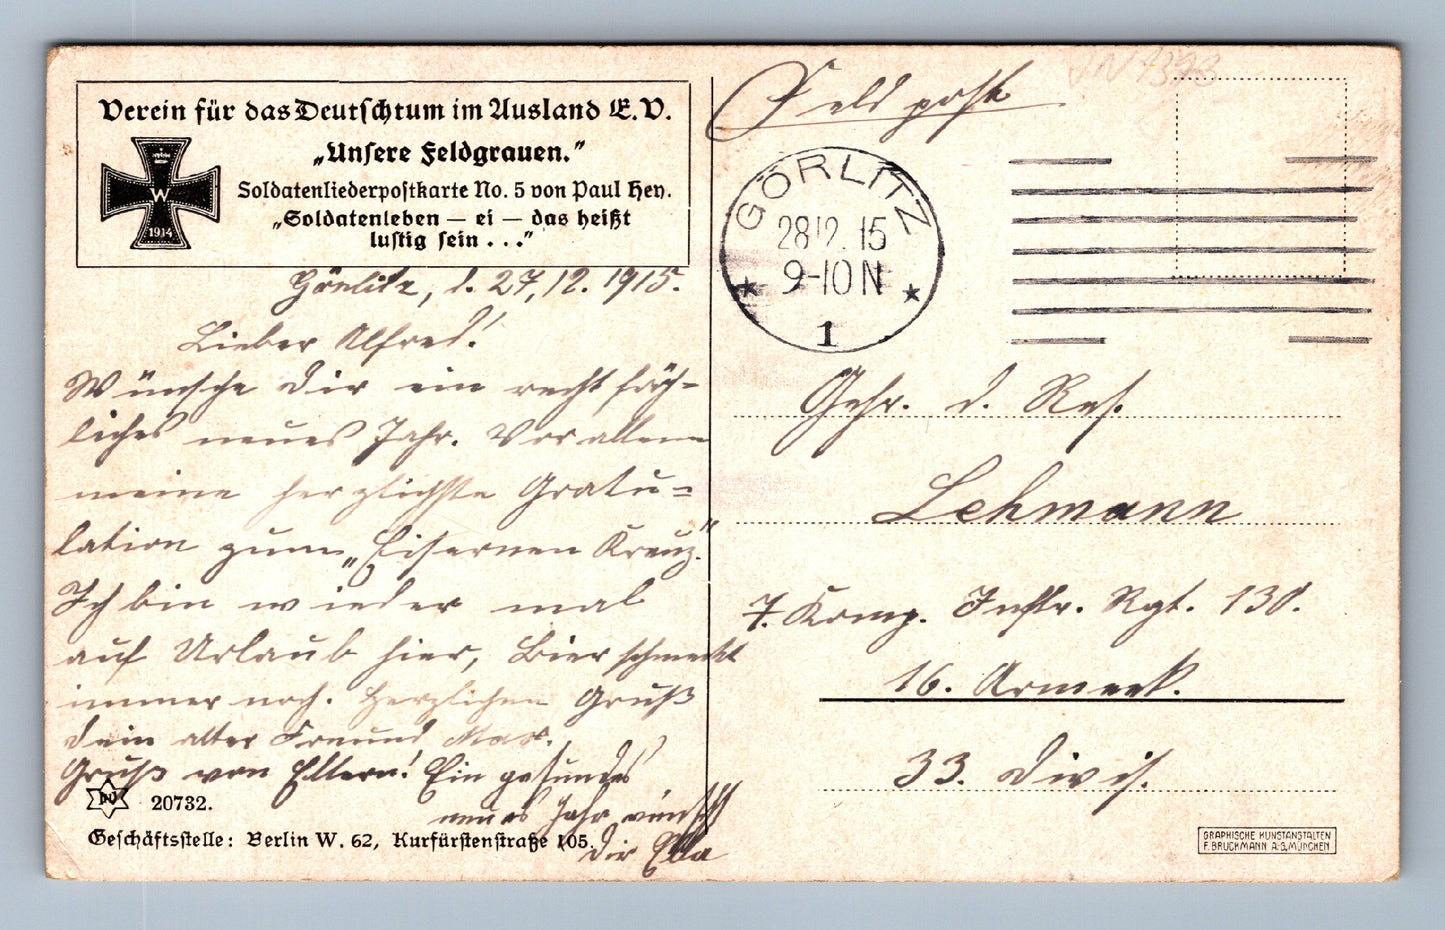 Verein für das Deutschtum im Ausland E.V.
„Unsere Feldgrauen."
Soldatenliederpostkarte No. 5 von Paul Hey.
„Soldatenleben — ei — das heißt
lustig sein . . ."
W
1914
Feldpost
GÖRLITZ
28.12.15
9-10 N
1
Görlitz, d. 27.12.1915.
Lieber Alfred!
Wünsche Dir ein recht fröh-
liches neues Jahr. Vor allem
meine herzlichste Gratu-
lation zum „Eisernen Kreuz."
Ich bin wieder mal
auf Urlaub hier, Bier schmeckt
immer noch. Herzlichen Gruß
Dein alter Freund Max.
Gruß von Eltern! Ein gesundes
neues Jahr wünscht
Dir Ella
Gefr. d. Res.
Lehmann
7. Komp. Inftr. Rgt. 130.
16. Armeek.
33. Divis.
20732.
Geschäftsstelle: Berlin W. 62, Kurfürstenstraße 105.
GRAPHISCHE KUNSTANSTALTEN
F. BRUCKMANN A.G. MÜNCHEN